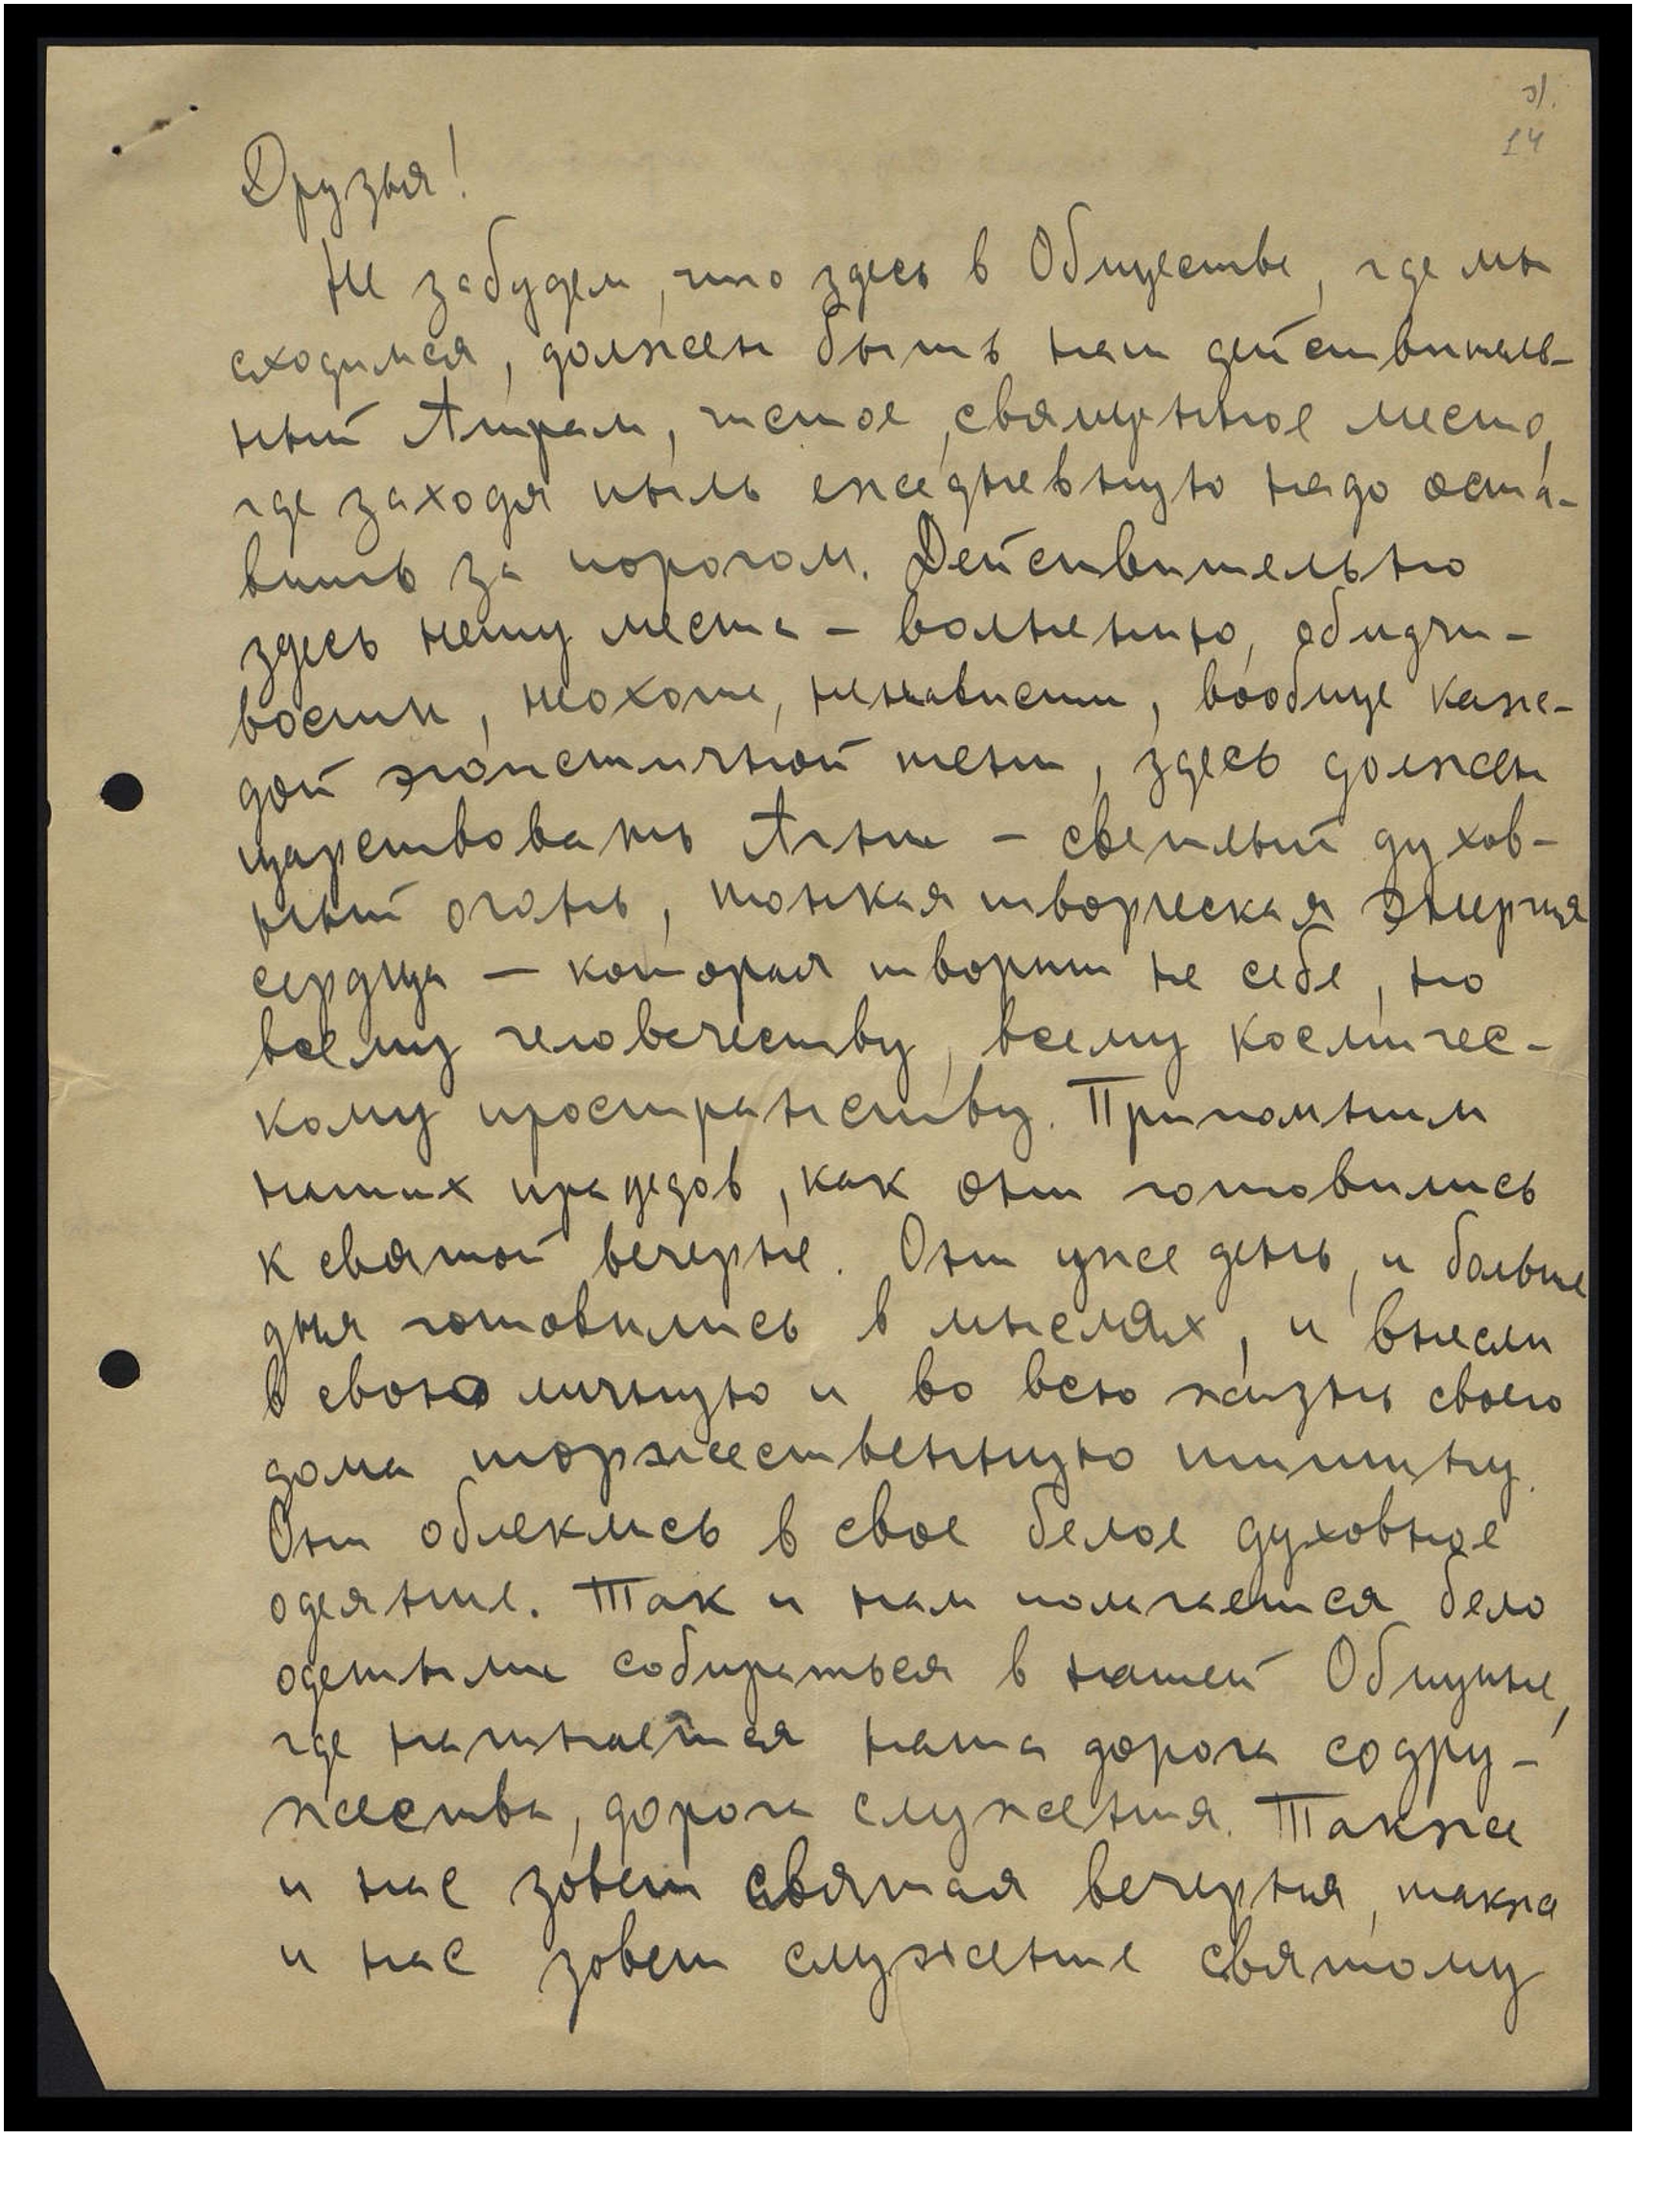 э).
14
Друзья!
Не забудем, что здесь в Обществе, где мы
сходимся, должен быть наш действитель-
ный Ашрам, чистое, священное место,
где заходя пыль ежедневную надо оста-
вить за порогом. Действительно
здесь нету места – волнению, обидчи-
вости, неохоте, ненависти, вообще каж-
дой эгоистичной тени, здесь должен
царствовать Агни – светлый духов-
ный огонь, тонкая творческая энергия
сердца – которая творит не себе, но
всему человечеству, всему космичес-
кому пространству. Припомним
наших прадедов, как они готовились
к святой вечерне. Они уже день, и больше
дня готовились в мыслях, и внесли
в свою личную и во всю жизнь своего
дома торжественную тишину.
Они облеклись в свое белое духовное
одеяние. Так и нам полагается бело
одетыми собираться в нашей Общине,
где начинается наша дорога содру-
жества, дорога служения. Также
и нас зовет святая вечерня, также
и нас зовет служение святому